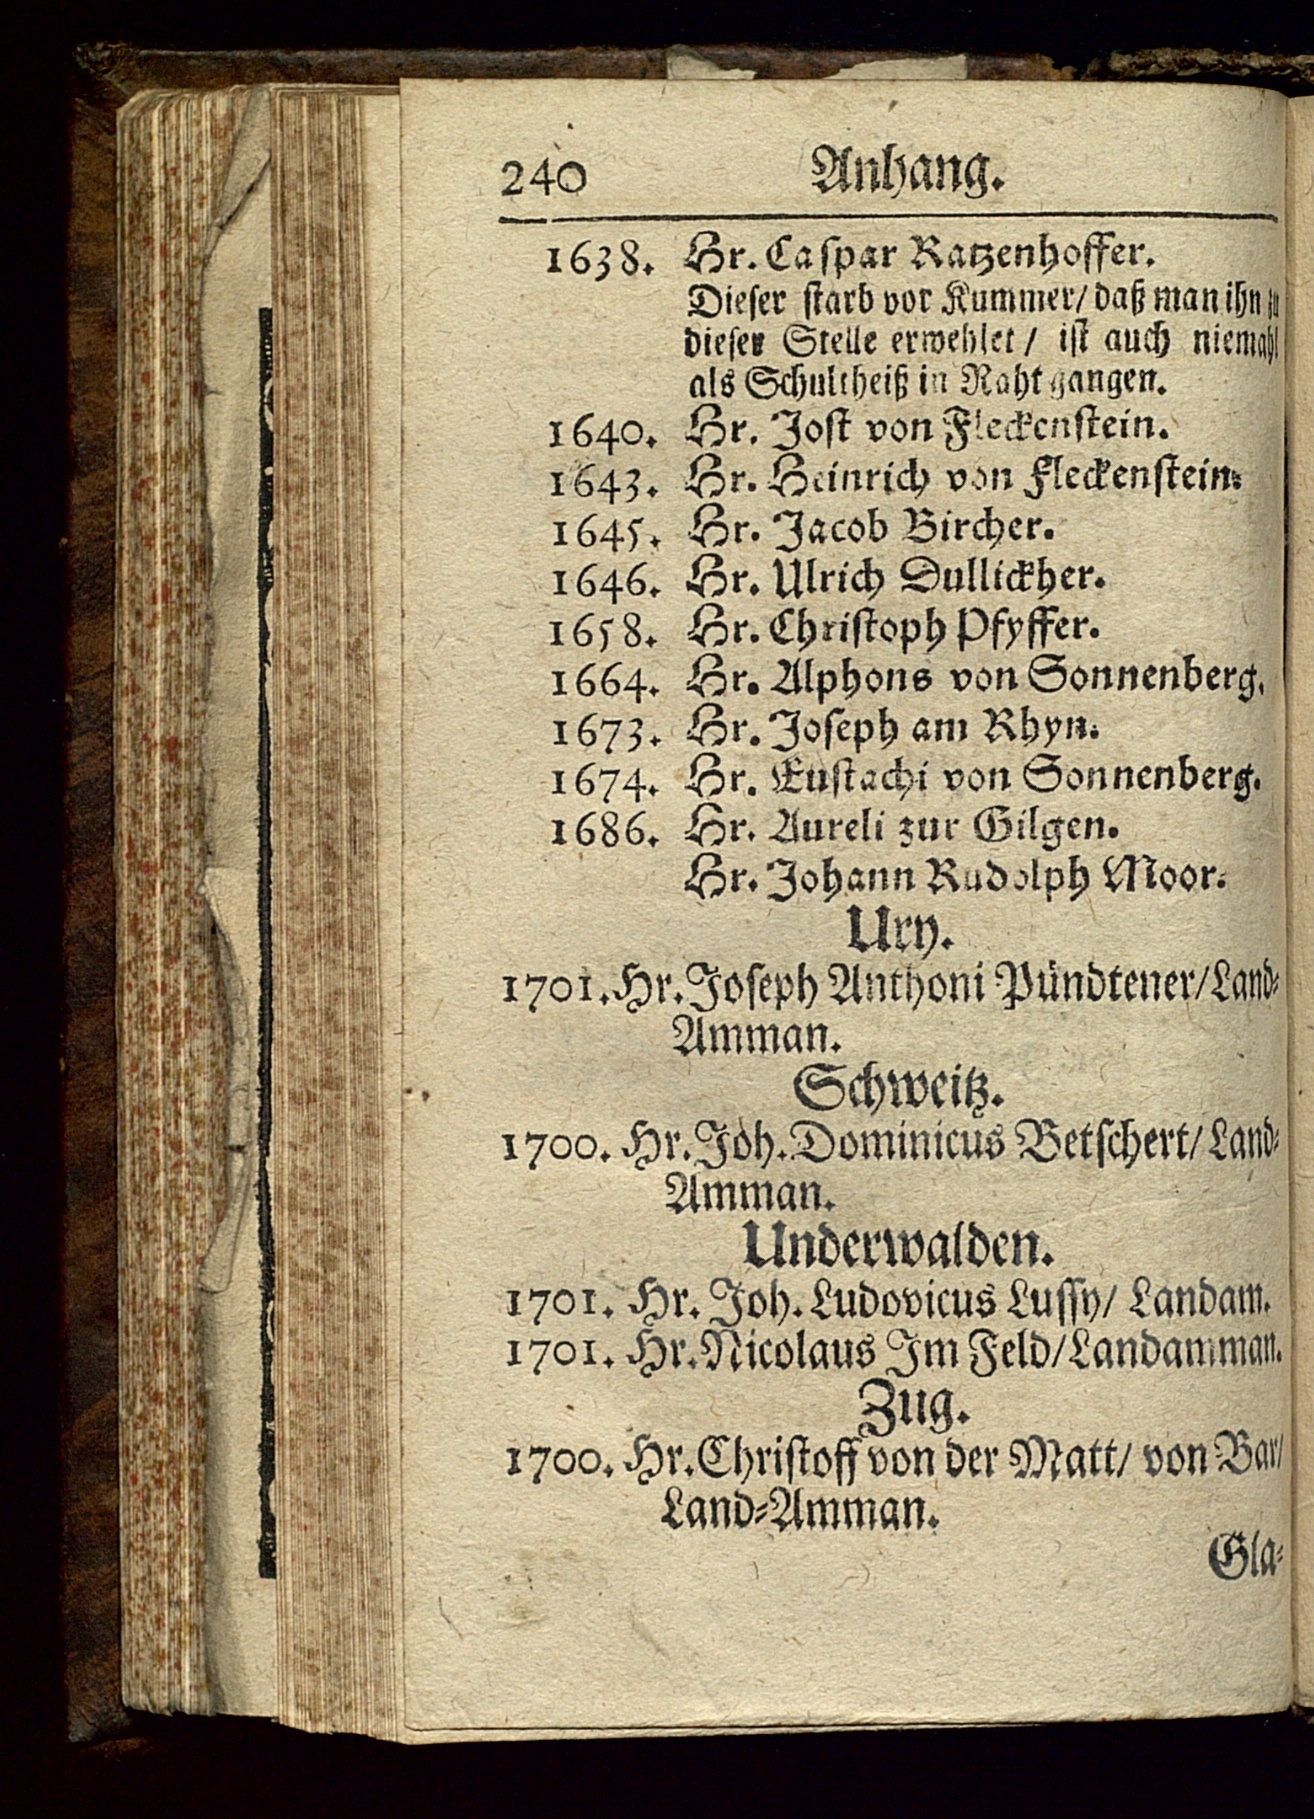 240 Anhang.
1638. Hr. Caspar Ratzenhoffer.
Dieser starb vor Kummer/ daß man ihn zu
dieser Stelle erwehlet/ ist auch niemahl
als Schultheiß in Raht gangen.
1640. Hr. Jost von Fleckenstein.
1643. Hr. Heinrich von Fleckenstein.
1645. Hr. Jacob Bircher.
1646. Hr. Ulrich Dullickher.
1658. Hr. Christoph Pfyffer.
1664. Hr. Alphons von Sonnenberg.
1673. Hr. Joseph am Rhyn.
1674. Hr. Eustachi von Sonnenberg.
1686. Hr. Aureli zur Gilgen.
Hr. Johann Rudolph Moor.
Ury.
1701. Hr. Joseph Anthoni Pündtener/ Land-
Amman.
Schweitz.
1700. Hr. Joh. Dominicus Betschert/ Land-
Amman.
Underwalden.
1701. Hr. Joh. Ludovicus Lussy/ Landam.
1701. Hr. Nicolaus Im Feld/ Landamman.
Zug.
1700. Hr. Christoff von der Matt/ von Bar/
Land-Amman.
Gla-